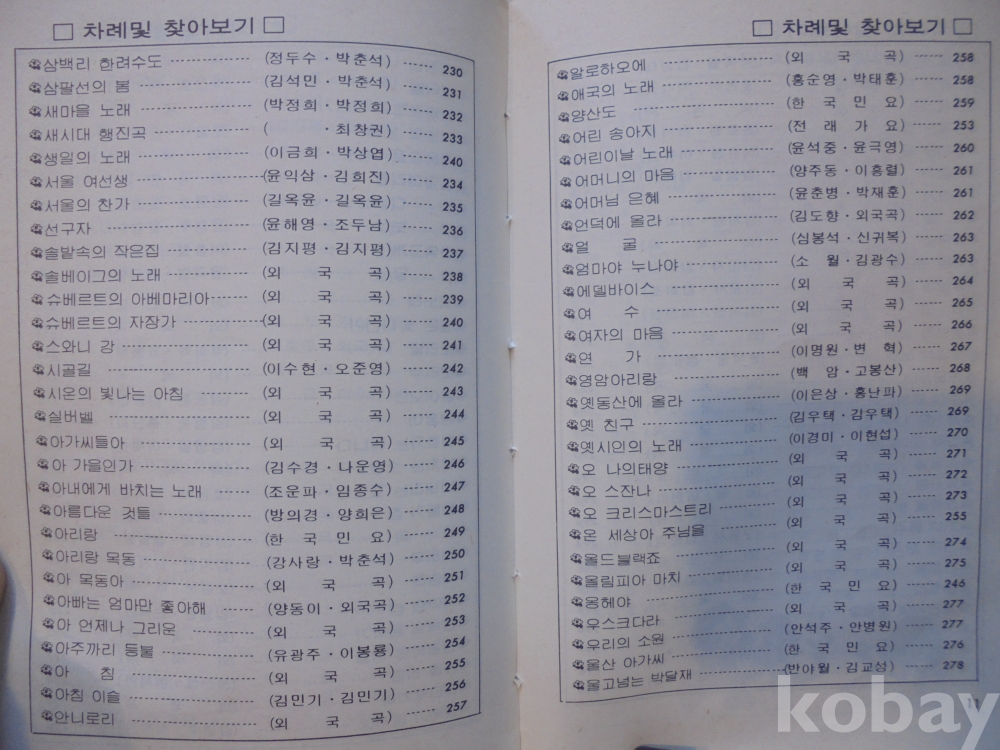 □ 차례및 찾아보기 □
삼백리 한려수도 (정두수·박춘석) 230
삼팔선의 봄 (김석민·박춘석) 231
새마을 노래 (박정희·박정희) 232
새시대 행진곡 ( ·최창권) 233
생일의 노래 (이금희·박상엽) 240
서울 여선생 (윤익삼·김희진) 234
서울의 찬가 (길옥윤·길옥윤) 235
선구자 (윤해영·조두남) 236
솔밭속의 작은집 (김지평·김지평) 237
솔베이그의 노래 (외 국 곡) 238
슈베르트의 아베마리아 (외 국 곡) 239
슈베르트의 자장가 (외 국 곡) 240
스와니 강 (외 국 곡) 241
시골길 (이수현·오준영) 242
시온의 빛나는 아침 (외 국 곡) 243
실버벨 (외 국 곡) 244
아가씨들아 (외 국 곡) 245
아 가을인가 (김수경·나운영) 246
아내에게 바치는 노래 (조운파·임종수) 247
아름다운 것들 (방의경·양희은) 248
아리랑 (한 국 민 요) 249
아리랑 목동 (강사랑·박춘석) 250
아 목동아 (외 국 곡) 251
아빠는 엄마만 좋아해 (양동이·외국곡) 252
아 언제나 그리운 (외 국 곡) 253
아주까리 등불 (유광주·이봉룡) 254
아 침 (외 국 곡) 255
아침 이슬 (김민기·김민기) 256
안니로리 (외 국 곡) 257
□ 차례및 찾아보기 □
알로하오에 (외 국 곡) 258
애국의 노래 (홍순영·박태훈) 258
양산도 (한 국 민 요) 259
어린 송아지 (전 래 가 요) 253
어린이날 노래 (윤석중·윤극영) 260
어머니의 마음 (양주동·이흥렬) 261
어머님 은혜 (윤춘병·박재훈) 261
언덕에 올라 (김도향·외국곡) 262
얼 굴 (심봉석·신귀복) 263
엄마야 누나야 (소 월·김광수) 263
에델바이스 (외 국 곡) 264
여 수 (외 국 곡) 265
여자의 마음 (외 국 곡) 266
연 가 (이명원·변 혁) 267
영암아리랑 (백 암·고봉산) 268
옛동산에 올라 (이은상·홍난파) 269
옛 친구 (김우택·김우택) 269
옛시인의 노래 (이경미·이현섭) 270
오 나의태양 (외 국 곡) 271
오 스잔나 (외 국 곡) 272
오 크리스마스트리 (외 국 곡) 273
온 세상아 주님을 (외 국 곡) 255
올드블랙죠 (외 국 곡) 274
올림피아 마치 (외 국 곡) 275
옹헤야 (한 국 민 요) 246
우스크다라 (외 국 곡) 277
우리의 소원 (안석주·안병원) 277
울산 아가씨 (한 국 민 요) 276
울고넘는 박달재 (반야월·김교성) 278
11
kobay